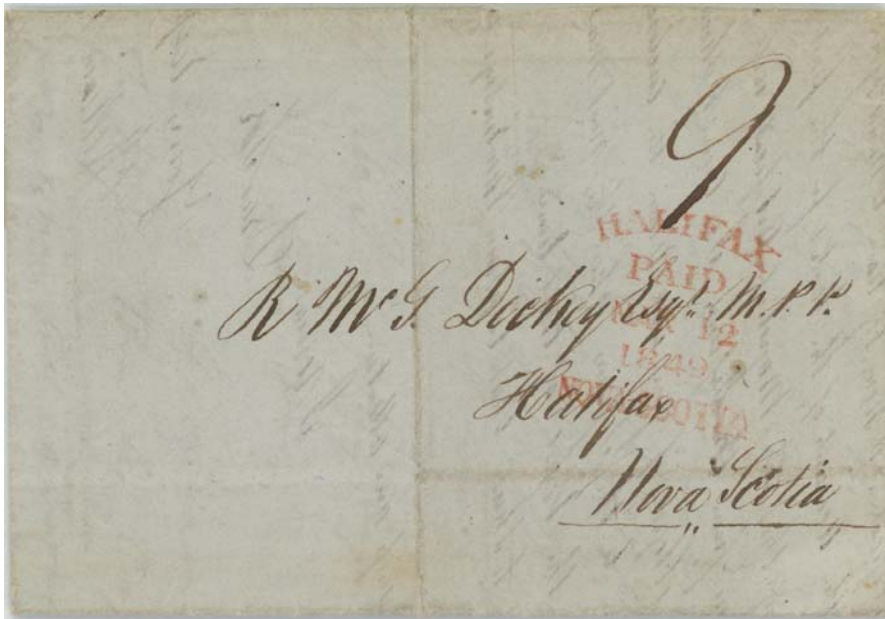 9
HALIFAX
PAID
MAR 12
1849
NOVA SCOTIA
R McG. Dickey Esqr. M.P.P.
Halifax
Nova Scotia